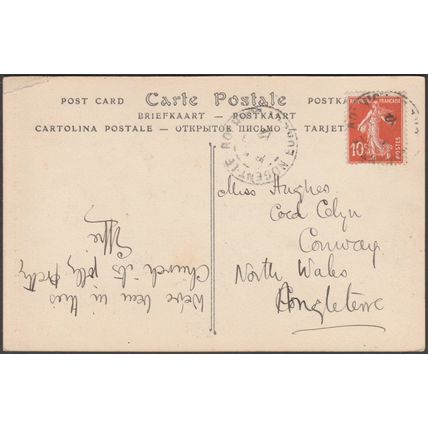 POST CARD Carte Postale POSTKA
BRIEFKAART — POSTKAART
CARTOLINA POSTALE — ОТКРЫТОЕ ПИСЬМО — TARJETA
NOGENT-LE-ROTROU
FRANÇAISE
10
POSTES
Miss Hughes
Coed Celyn
Conway
North Wales
Angleterre
We've been in this
Church its jolly pretty
Effie